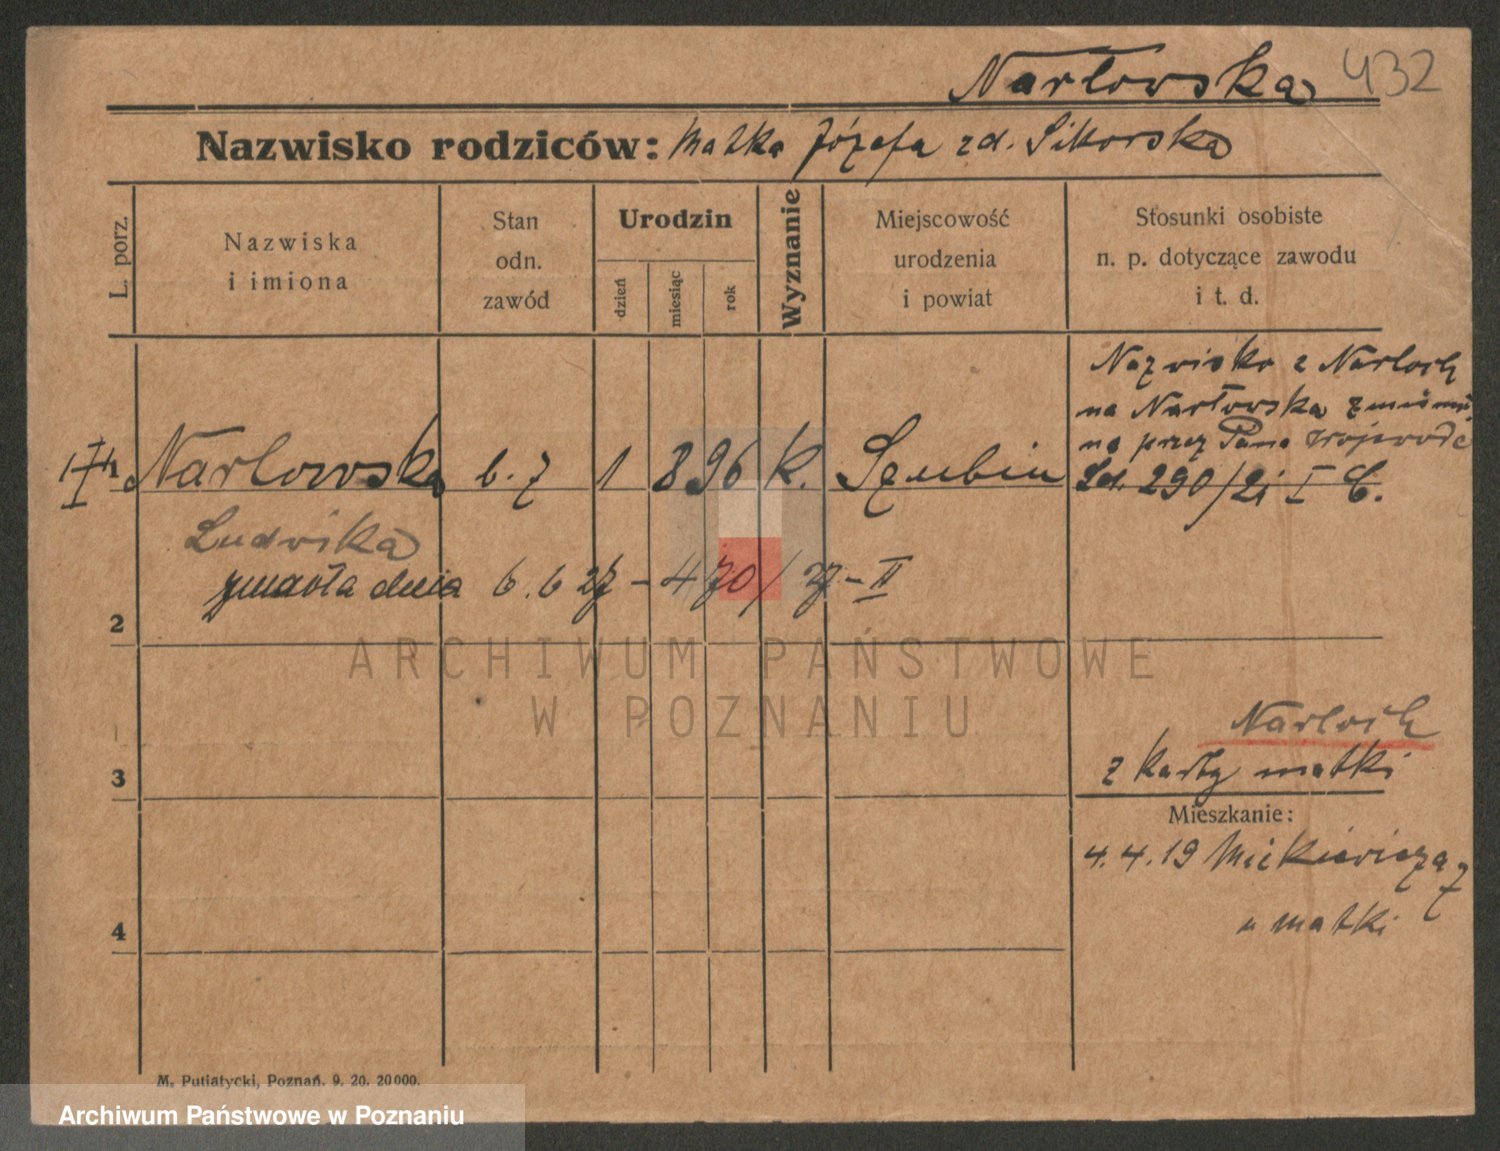 Narłowska 432
Nazwisko rodziców: Matka Józefa zd. Sikorska
L. porz.
Nazwiska
i imiona
Stan
odn.
zawód
Urodzin
dzień
miesiąc
rok
Wyznanie
Miejscowość
urodzenia
i powiat
Stosunki osobiste
n. p. dotyczące zawodu
i t. d.
Nazwisko z Narloch
na Narłowska zmienio
no przez Pana Wojewodę
Ld. 290/21 I C.
1 Narlowska b. z 1 8 96 K. Szubin
Ludwika
zmarła dnia 6.6 27 - 470/27 - II
2
ARCHIWUM PAŃSTWOWE
W POZNANIU
Narloch
3
z karty matki
Mieszkanie:
4. 4. 19 Mickiewicza 7
u matki
4
M. Putiatycki, Poznań. 9. 20. 20000.
Archiwum Państwowe w Poznaniu